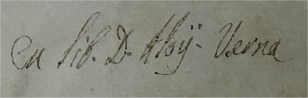 Ex Lib. D. Aloÿ. Verna